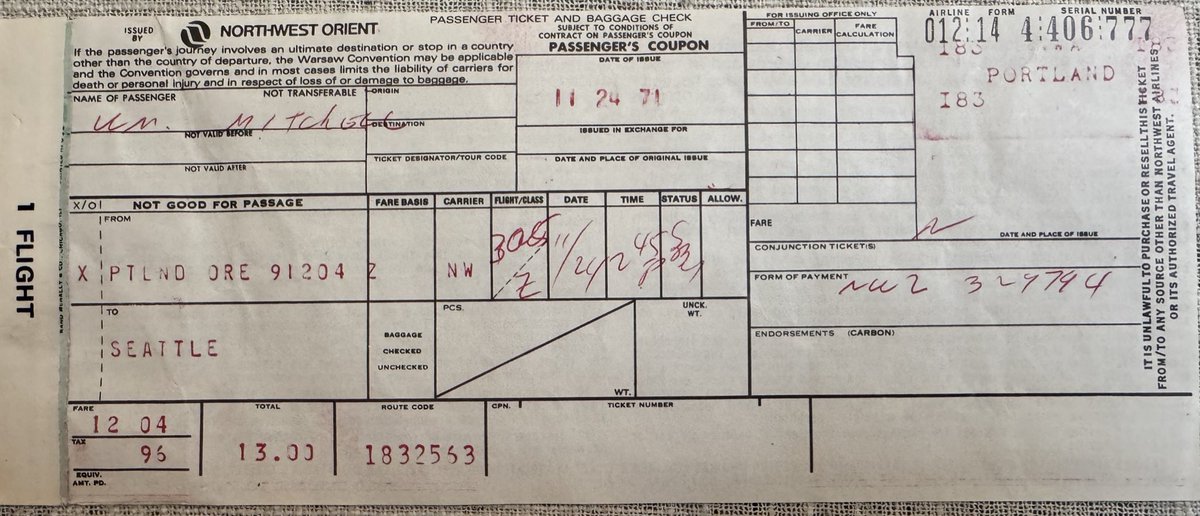 ISSUED BY
NORTHWEST ORIENT
If the passenger's journey involves an ultimate destination or stop in a country
other than the country of departure, the Warsaw Convention may be applicable
and the Convention governs and in most cases limits the liability of carriers for
death or personal injury and in respect of loss of or damage to baggage.
PASSENGER TICKET AND BAGGAGE CHECK
SUBJECT TO CONDITIONS OF
CONTRACT ON PASSENGER'S COUPON
PASSENGER'S COUPON
DATE OF ISSUE
11 24 71
ISSUED IN EXCHANGE FOR
DATE AND PLACE OF ORIGINAL ISSUE
NAME OF PASSENGER
NOT TRANSFERABLE
Mitchell
NOT VALID BEFORE
NOT VALID AFTER
ORIGIN
DESTINATION
TICKET DESIGNATOR/TOUR CODE
FOR ISSUING OFFICE ONLY
FROM/TO
CARRIER
FARE CALCULATION
AIRLINE FORM SERIAL NUMBER
012:14 4:406:777
I83
PORTLAND
I83
FARE
DATE AND PLACE OF ISSUE
CONJUNCTION TICKET(S)
FORM OF PAYMENT
329794
ENDORSEMENTS (CARBON)
IT IS UNLAWFUL TO PURCHASE OR RESELL THIS TICKET
FROM/TO ANY SOURCE OTHER THAN NORTHWEST AIRLINES
OR ITS AUTHORIZED TRAVEL AGENT.
X/O NOT GOOD FOR PASSAGE FARE BASIS CARRIER FLIGHT/CLASS DATE TIME STATUS ALLOW.
FROM
X PTLND ORE 91204 Z NW 305 Z 11/24 245P
TO
SEATTLE
BAGGAGE
CHECKED
UNCHECKED
PCS.
WT.
UNCK.
WT.
FARE
12 04
TAX
96
EQUIV.
AMT. PD.
TOTAL
13.00
ROUTE CODE
1832563
CPN.
TICKET NUMBER
1 FLIGHT